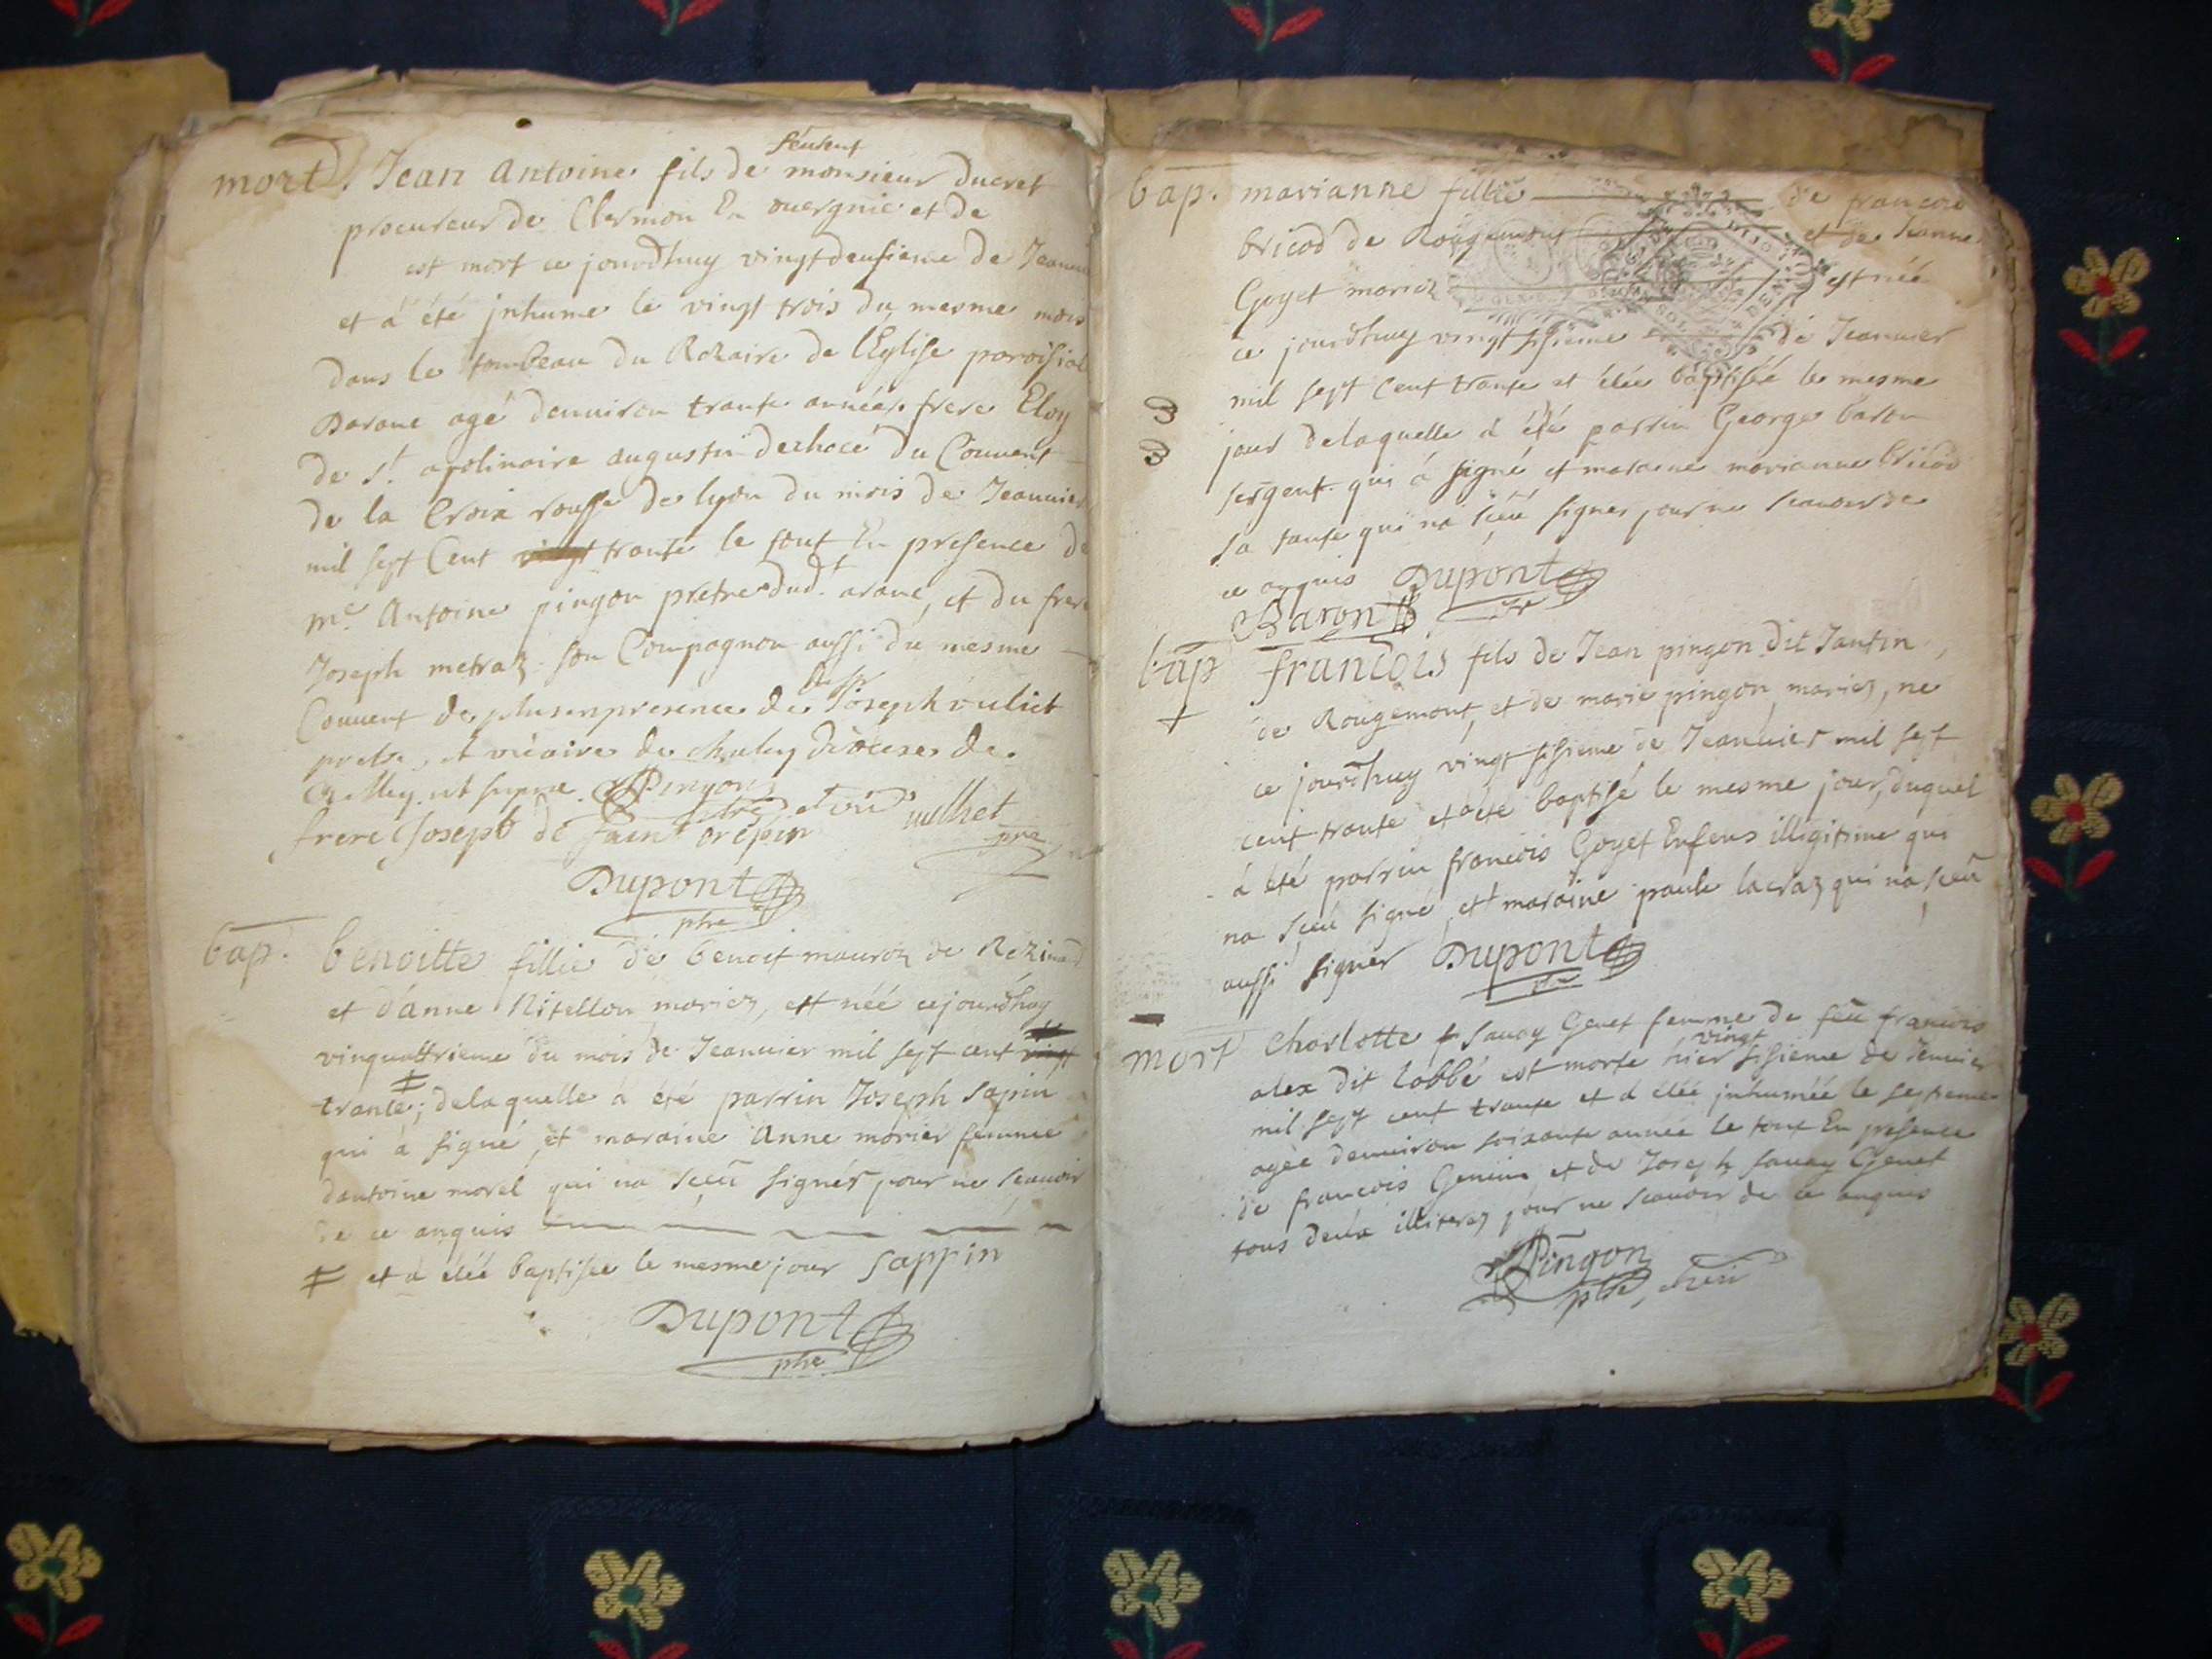 mort. Jean Antoine fils de monsieur ducret
procureur de Clermon En auergnie et de
est mort ce jourdhuy vingtdeusieme de Jeanuier
et à été jnhume le vingt trois du mesme mois
dans le tombeau du Rozaire de lEglise paroisial
Darane agé denuiron trante années frere Eloy
de St. apolinaire augustin dechocé du Couuent
de la Croix rousse de lyon du mois de Jeanuier
mil sept Cent vingt trante le tout En presence de
me Antoine pingon pretre dudt arane, et du frere
Joseph metraz son Compagnon aussi du mesme
Couuent de plus enpresence de Joseph vuliet
pretre, et vicaire de chaley dioceses de
Belley ut supra Pingon
frere Joseph de saint crépin vulliet
pre
Dupont
ptre
bap. benoitte fillie de benoit mauron de
et d'anne Nitellon mariez, est néé cejourdhuy
vingquattrieme du mois de Jeanuier mil sept cent vingt
trante; delaquelle à été parrin Joseph sapin
qui à signé, et maraine Anne morier femme
dantoine morel qui na sceü signér pour ne scauoir
de ce anquis
et à étéé baptisée le mesme jour sappin
Dupont
ptre
bap. marianne fillie de francois
bricod de Rougemont et de Jeanne
Goyet mariez est néé
ce jourdhuy vingt sisieme de Jeanuier
mil sept cent trante et étéé baptiséé le mesme
jour delaquelle à été parrin George baron
sergent qui à signé et maraine marianne bricod
sa tante qui na sceü signer pour ne scauoir de
ce anquis Dupont
Baron
bap françois fils de Jean pingon dit Tantin,
de Rougemont, et de marie pingon mariez, ne
ce jourdhuy vingt sisieme de Jeanuier mil sept
cent trante et à été baptisé le mesme jour, duquel
à été parrin francois Goyet Enfens illigitime qui
na sceü signé, et maraine paule lacraz qui na sceü
aussi signer Dupont
mort Charlotte sauay Genet femme de feü francois
vingt
alex dit labbé est morte hier sisieme de Jenuier
mil sept cent trante et à étéé jnhuméé le septieme
agée denuiron soixante année le tout En presence
de francois Genin et de Joseph sauay Genet
tous deüx illiterez pour ne scauoir de ce anquis
Pingon
ptre,